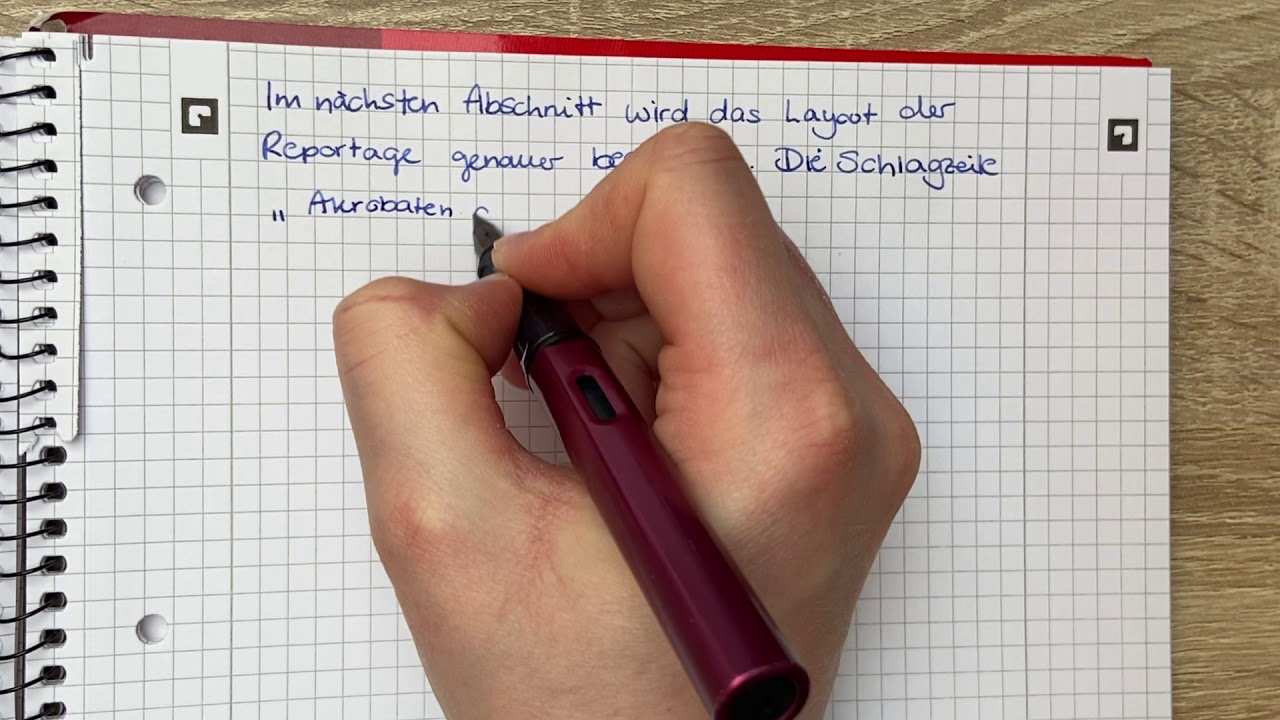 Im nächsten Abschnitt wird das Layout der
Reportage genauer Die Schlagzeile
„ Akrobaten